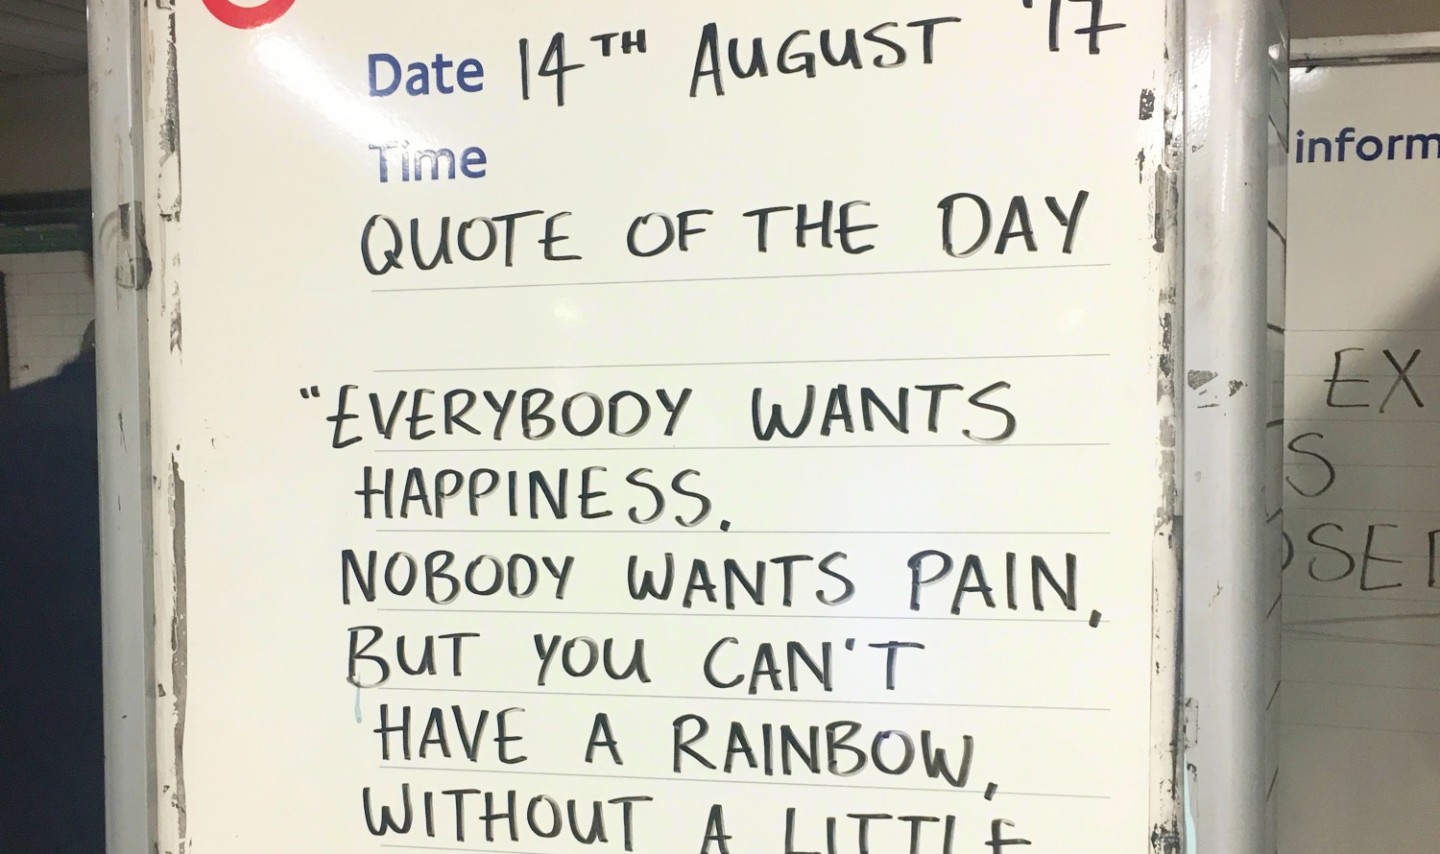 Date 14TH AUGUST '17
Time
QUOTE OF THE DAY
"EVERYBODY WANTS
HAPPINESS.
NOBODY WANTS PAIN,
BUT YOU CAN'T
HAVE A RAINBOW,
WITHOUT A LITTLE
inform
EX
S
OSED